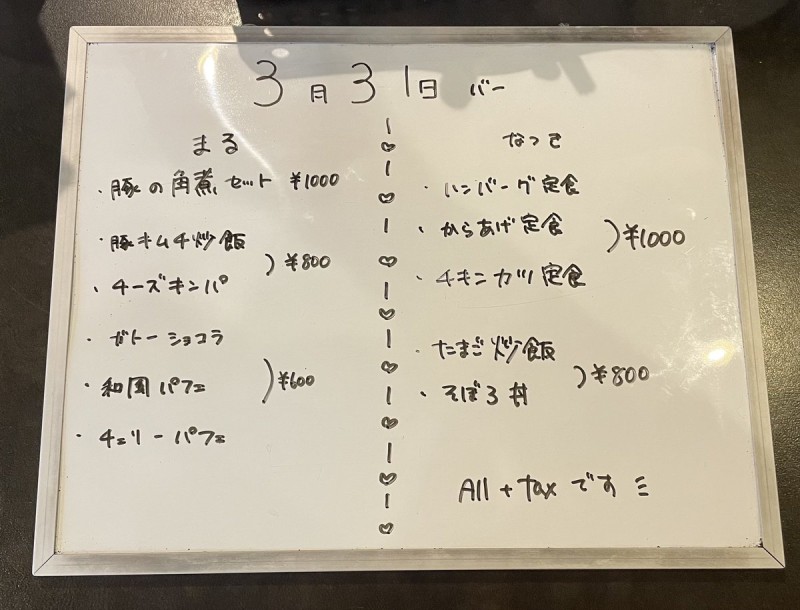 3月31日 バー
まる
・豚の角煮セット ¥1000
・豚キムチ炒飯
・チーズキンパ
)¥800
・ガトーショコラ
・和風パフェ
・チェリーパフェ
)¥600
なつき
・ハンバーグ定食
・からあげ定食
・チキンカツ定食
)¥1000
・たまご炒飯
・そぼろ丼
)¥800
All + tax です